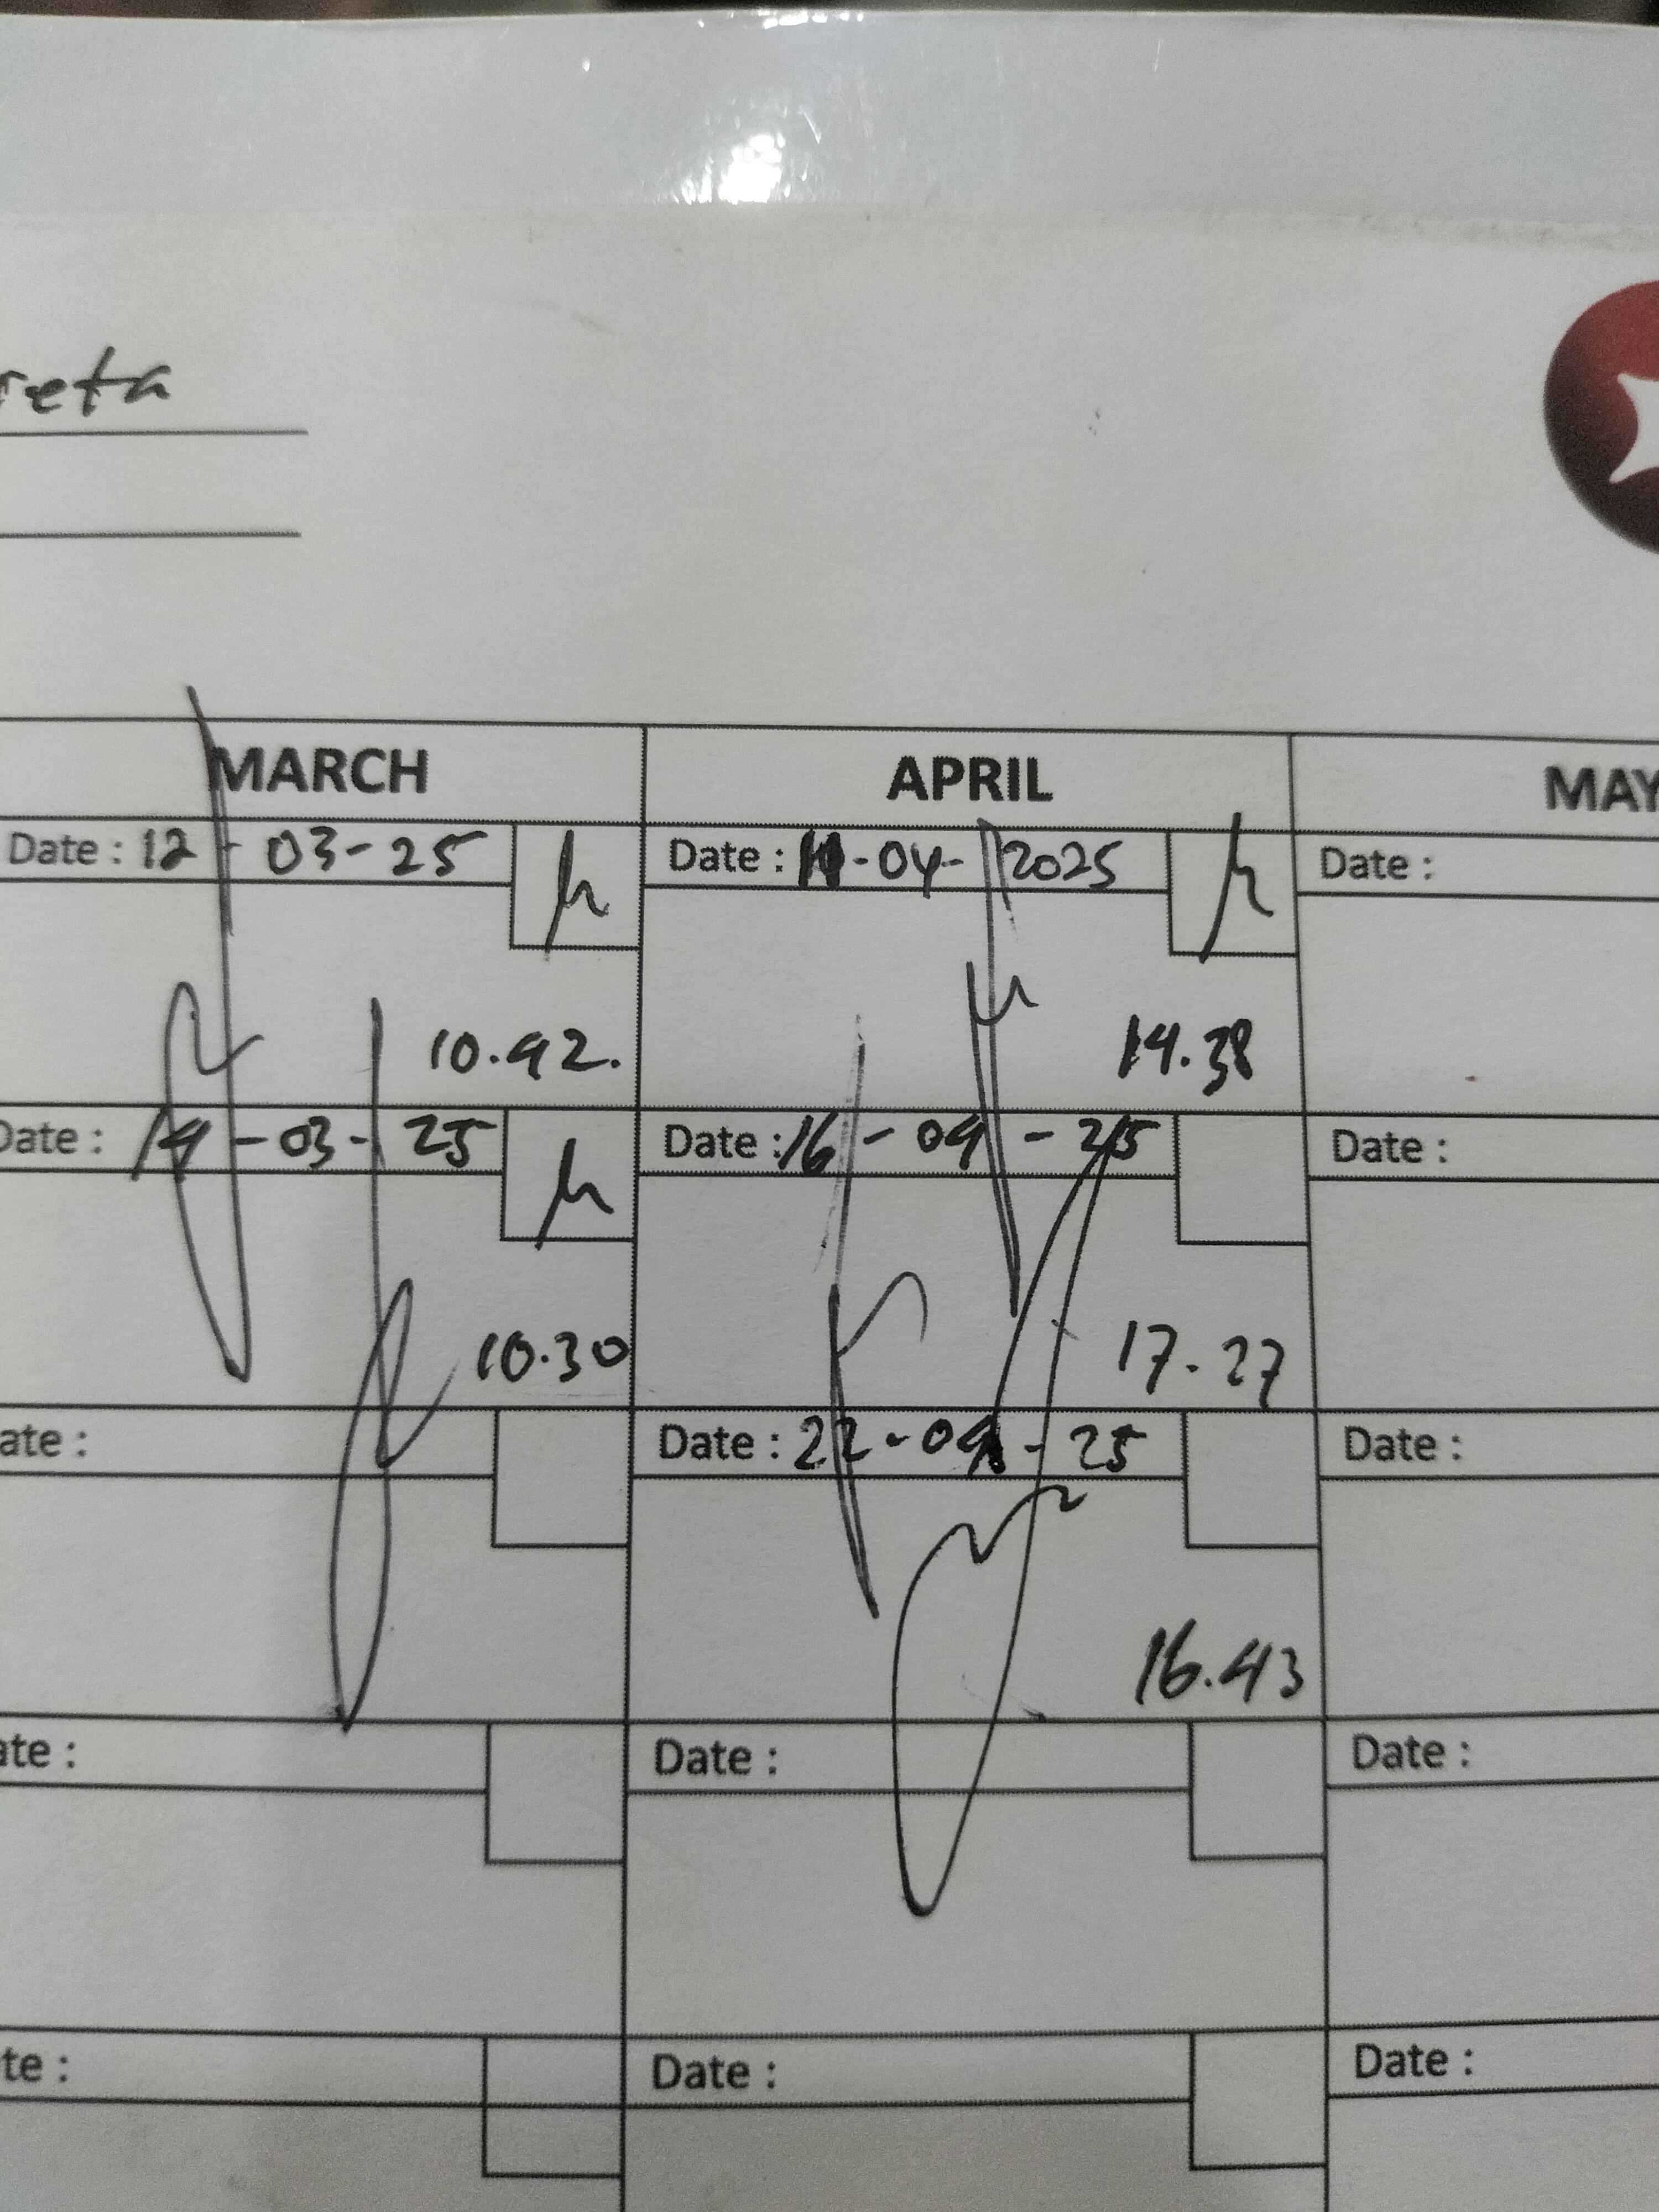 reta
MARCH APRIL MAY
Date : 12 - 03 - 25 Date : 11-04-2025 Date :
10.42. 14.38
Date : 14 - 03 - 25 Date : 16 - 04 - 25 Date :
10.30 17.27
ate : Date : 22 - 04 - 25 Date :
16.43
ate : Date : Date :
te : Date : Date :